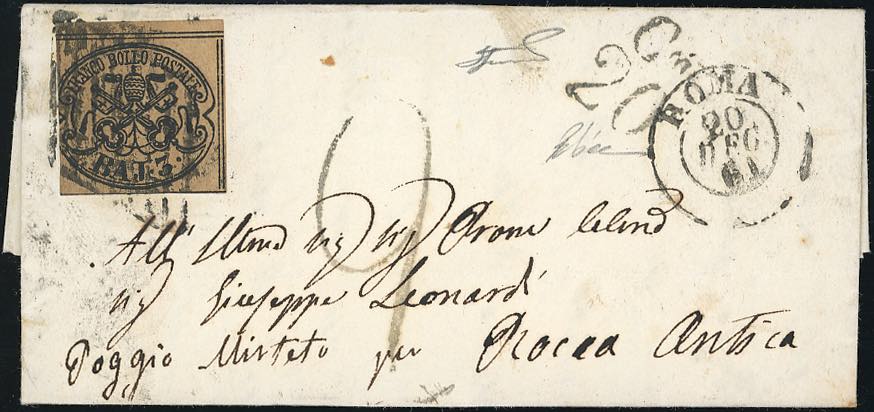 FRANCO BOLLO POSTALE
BAJ: 3.
C 20
ROMA
20
DEC
61
9
All'Illmo Sig Sig Prone Colmo
Sig Giuseppe Leonardi
Poggio Mirteto per Rocca Antica